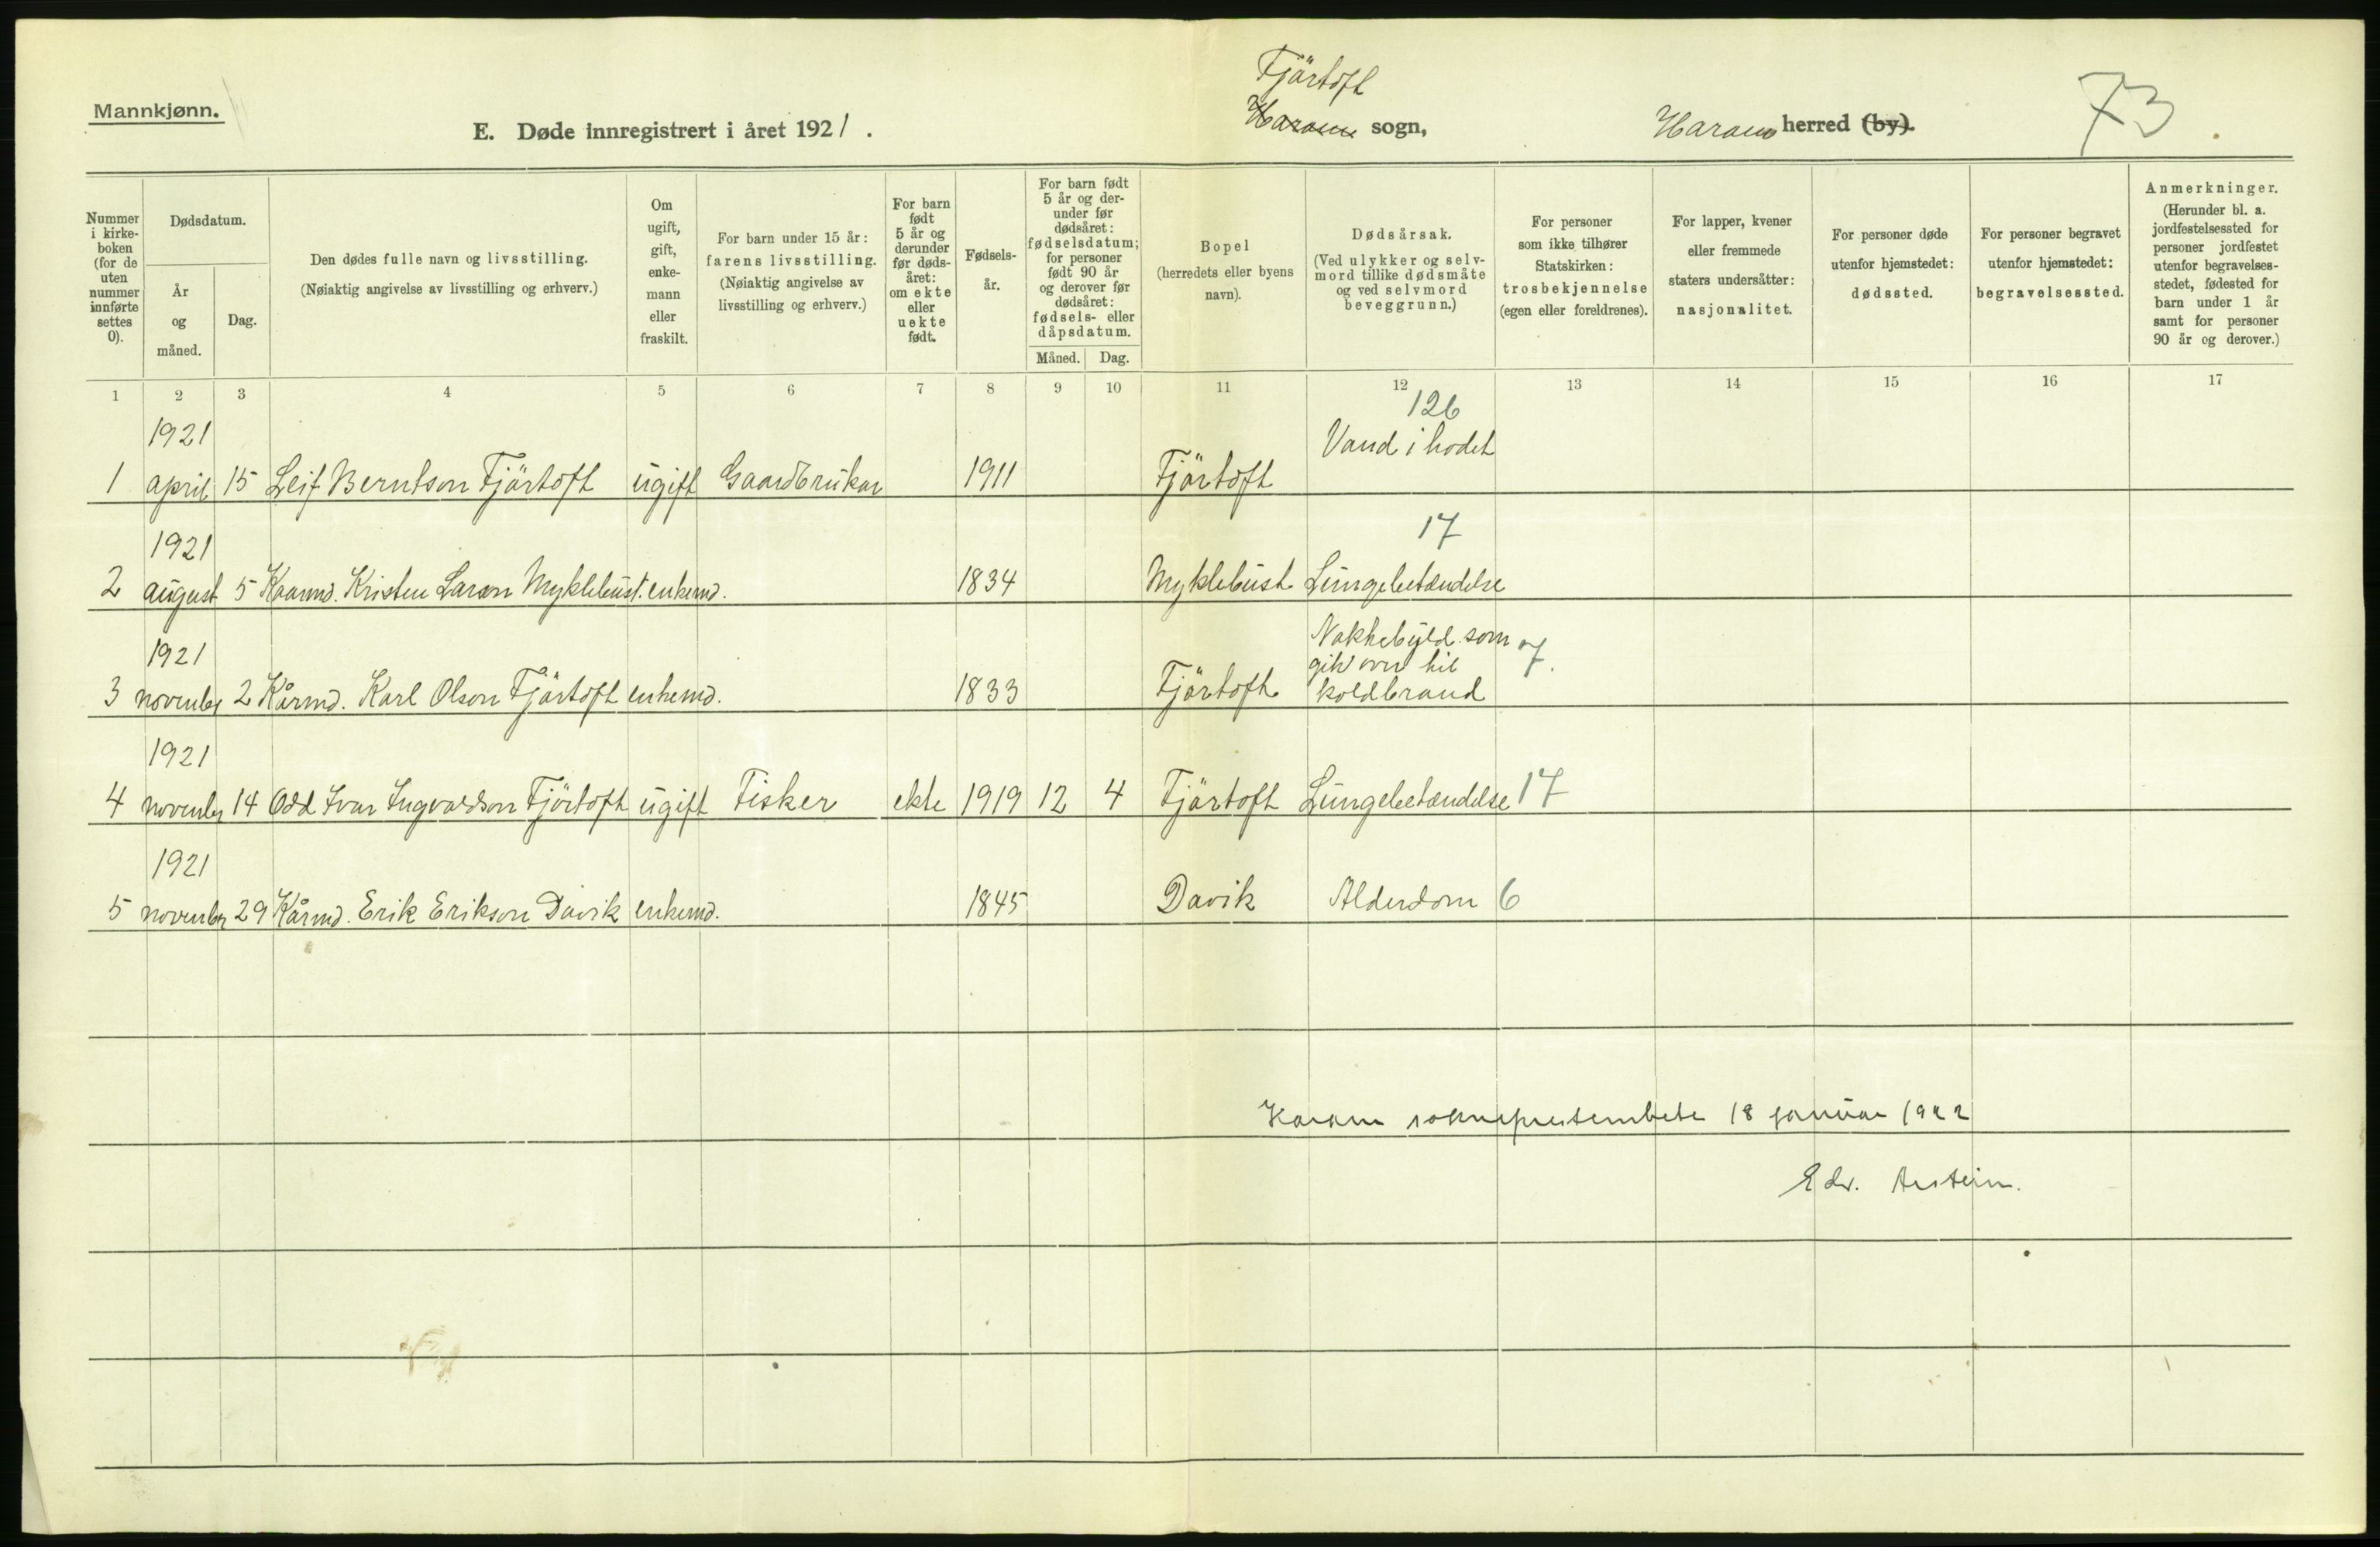 Mannkjønn.
E. Døde innregistrert i året 1921.
Fjärtoft
Haram sogn,
Haram herred (by).
73
Nummer i kirke-boken (for de uten nummer innførte settes 0).
Dødsdatum.
År og måned.
Dag.
Den dødes fulle navn og livsstilling.
(Nøiaktig angivelse av livsstilling og erhverv.)
Om ugift, gift, enke-mann eller fraskilt.
For barn under 15 år: farens livsstilling.
(Nøiaktig angivelse av livsstilling og erhverv.)
For barn født 5 år og derunder før døds-året: om ekte eller uekte født.
Fødsels-år.
For barn født 5 år og der-under før dødsåret: fødselsdatum; for personer født 90 år og derover før dødsåret: fødsels- eller dåpsdatum.
Måned.
Dag.
Bopel
(herredets eller byens navn).
Dødsårsak.
(Ved ulykker og selv-mord tillike dødsmåte og ved selvmord beveggrunn.)
For personer som ikke tilhører Statskirken: trosbekjennelse (egen eller foreldrenes).
For lapper, kvener eller fremmede staters undersåtter: nasjonalitet.
For personer døde utenfor hjemstedet: dødssted.
For personer begravet utenfor hjemstedet: begravelsessted.
Anmerkninger.
(Herunder bl. a. jordfestelsessted for personer jordfestet utenfor begravelses-stedet, fødested for barn under 1 år samt for personer 90 år og derover.)
1 2 3 4 5 6 7 8 9 10 11 12 13 14 15 16 17
1921 126
Vand i hodet
1 april 15 Leif Berntson Fjärtoft ugift Gaardbrukar 1911 Fjärtoft
1921 17
2 august 5 Kaarmd. Kristen Larsen Myklebust enkemd. 1834 Myklebust Lungebetændelse
1921 Nakkebyld som 7.
gik over til
3 november 2 Kårmd. Karl Olson Fjärtoft enkemd. 1833 Fjärtoft koldbrand
1921
4 november 14 Odd Ivar Ingvaldson Fjörtoft ugift Fisker ekte 1919 12 4 Fjärtoft Lungebetændelse 17
1921
5 november 29 Kårmd. Erik Erikson Davik enkemd. 1845 Davik Alderdom 6
Haram sokneprestembete 18 januar 1922
Edv.